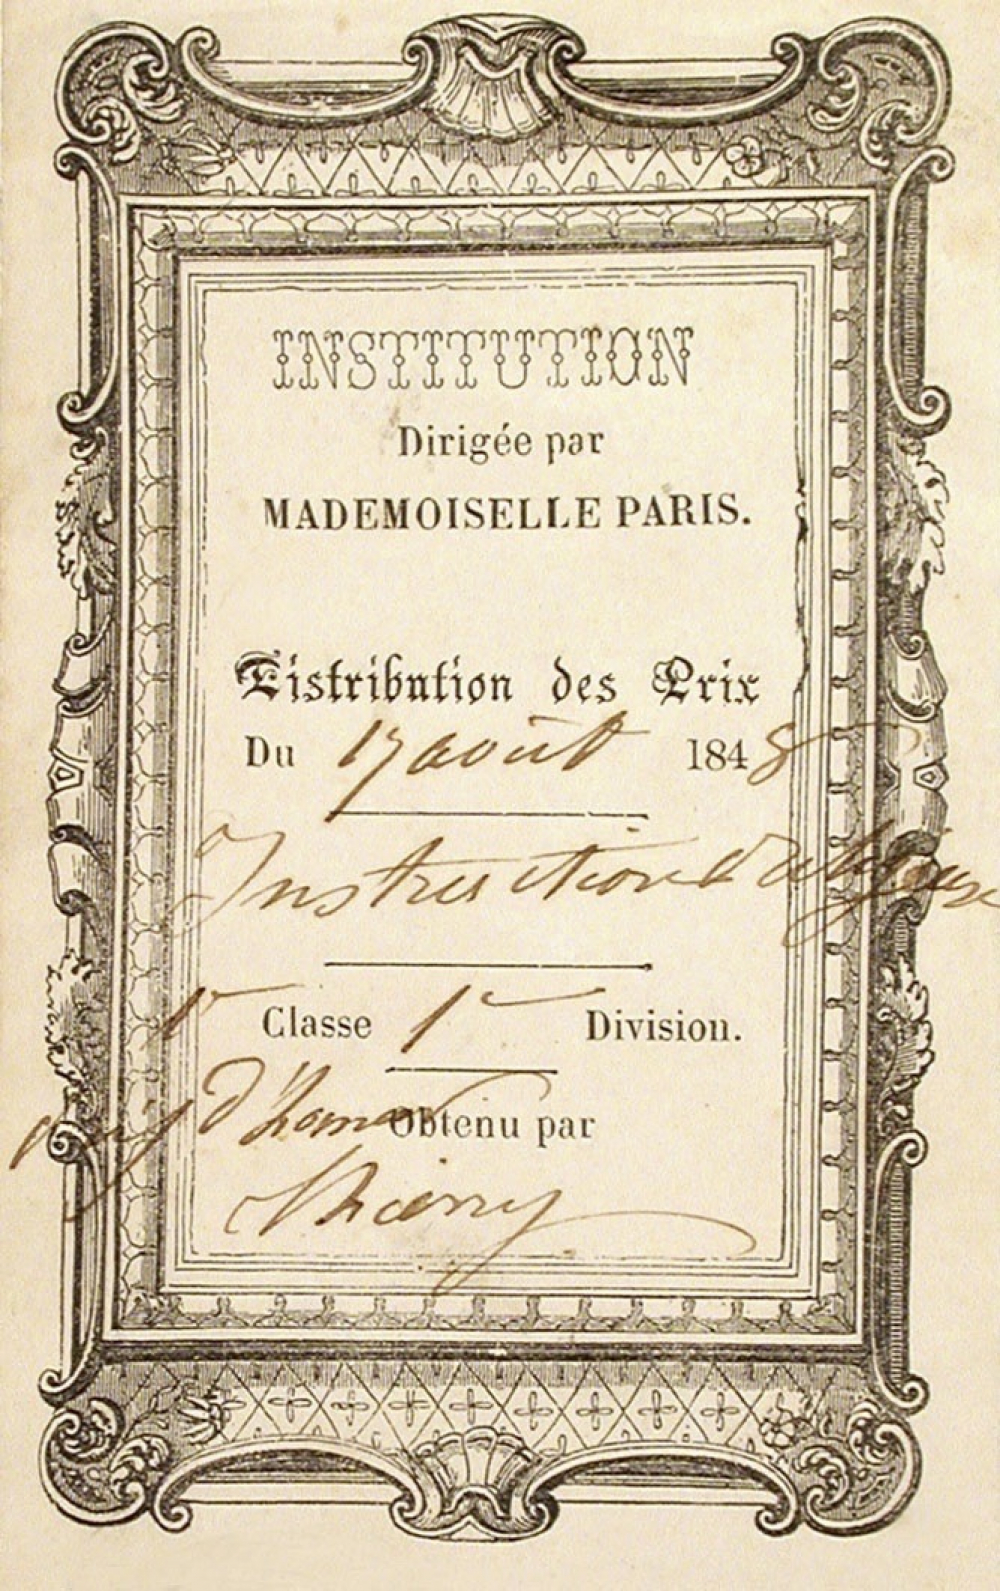 INSTITUTION
Dirigée par
MADEMOISELLE PARIS.
Distribution des Prix
Du 17 août 1848
Instruction Religieuse
1e Classe 1e Division.
prix d'honneur
Obtenu par
Thierry